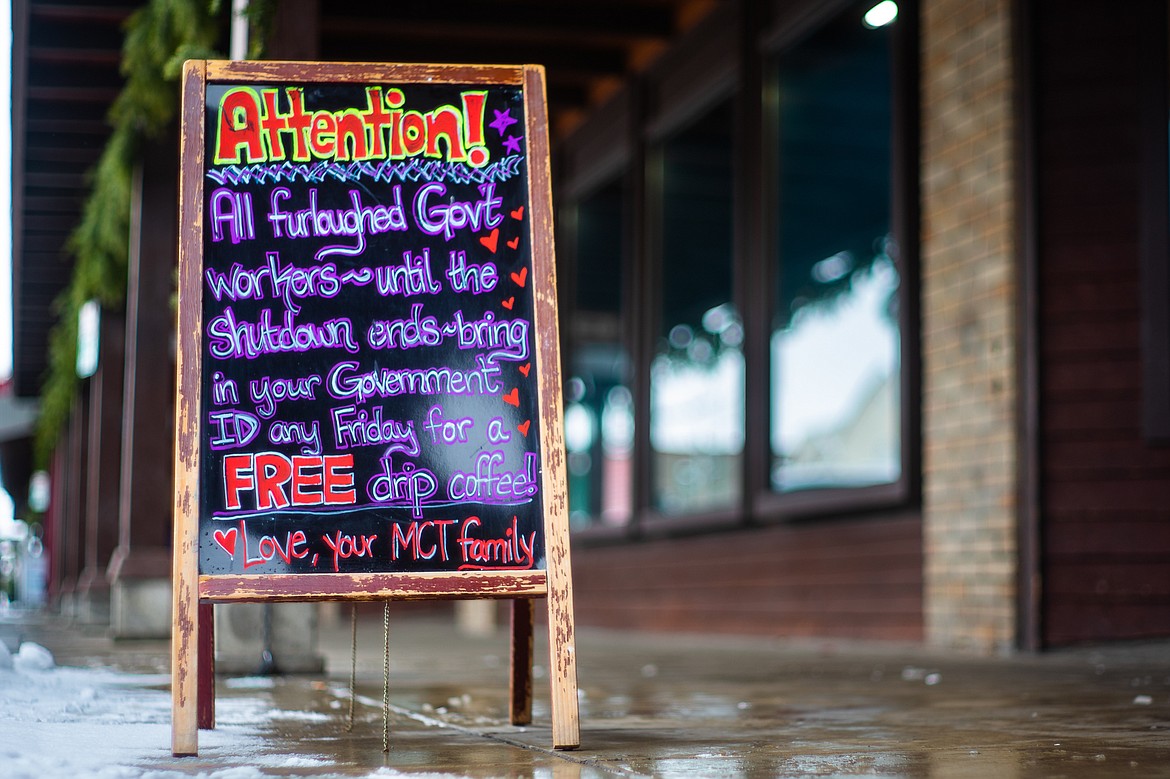 Attention!
All furlaughed Gov't
workers~until the
Shutdown ends~bring
in your Government
ID any Friday for a
FREE drip coffee!
Love, your MCT family